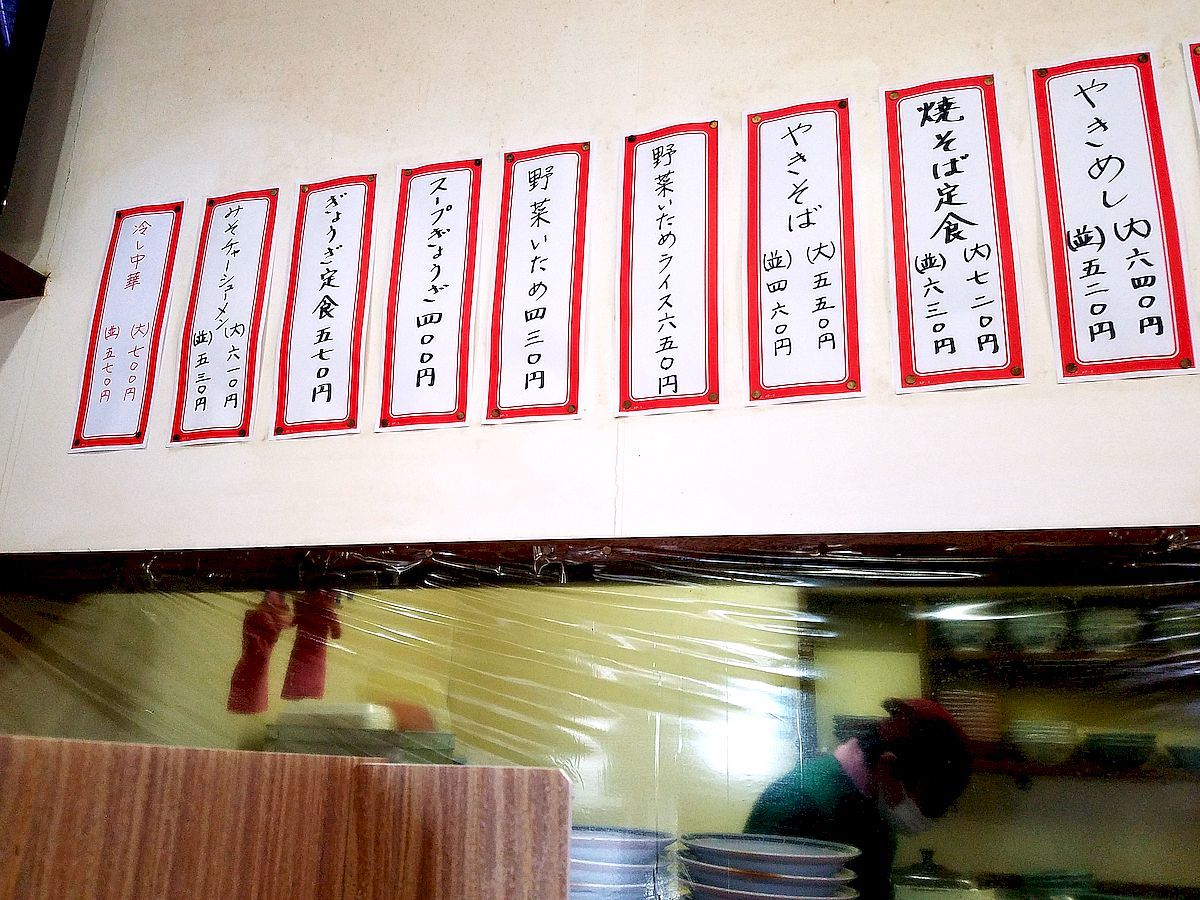 やきめし
(大)六四〇円
(並)五二〇円
焼そば定食
(大)七二〇円
(並)六三〇円
やきそば
(大)五五〇円
(並)四六〇円
野菜いためライス六五〇円
野菜いため四三〇円
スープぎょうざ四〇〇円
ぎょうざ定食五七〇円
みそチャーシューメン
(大)六一〇円
(並)五三〇円
冷し中華
(大)七〇〇円
(並)五七〇円